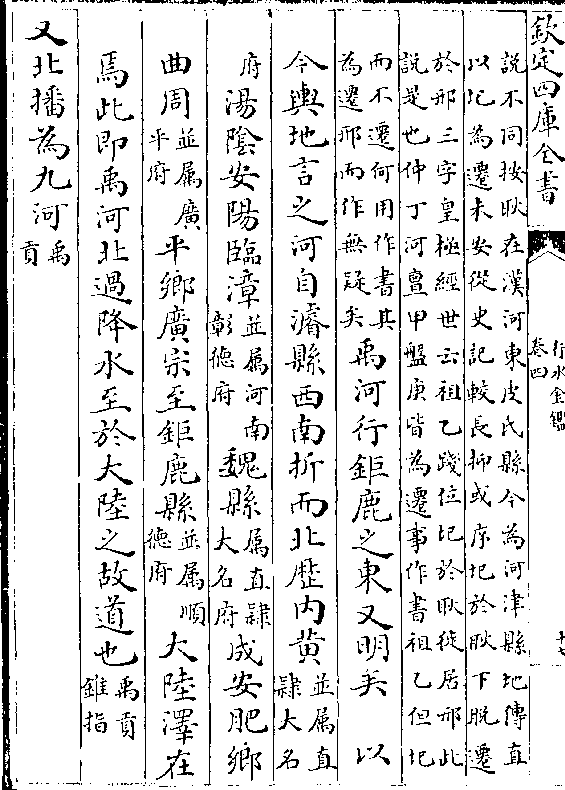 欽定四庫全書
行水金鑑
卷四
十七
說不同按耿在漢河東皮氏縣今為河津縣地傳直
以圮為遷未安從史記較長抑或序圮於耿下脫遷
於邢三字皇極經世云祖乙踐位圮於耿徙居邢此
說是也仲丁河亶甲盤庚皆為遷事作書祖乙但圮
而不遷何用作書其
為遷邢而作無疑矣
禹河行鉅鹿之東又明矣 以
今輿地言之河自濬縣西南折而北歷內黃
並屬直
隸大名
府
湯陰安陽臨漳
並屬河南
彰德府
魏縣
屬直隸
大名府
成安肥鄉
曲周
並屬廣
平府
平鄉廣宗至鉅鹿縣
並屬順
德府
大陸澤在
焉此即禹河北過降水至於大陸之故道也
禹貢
錐指
又北播為九河
禹
貢